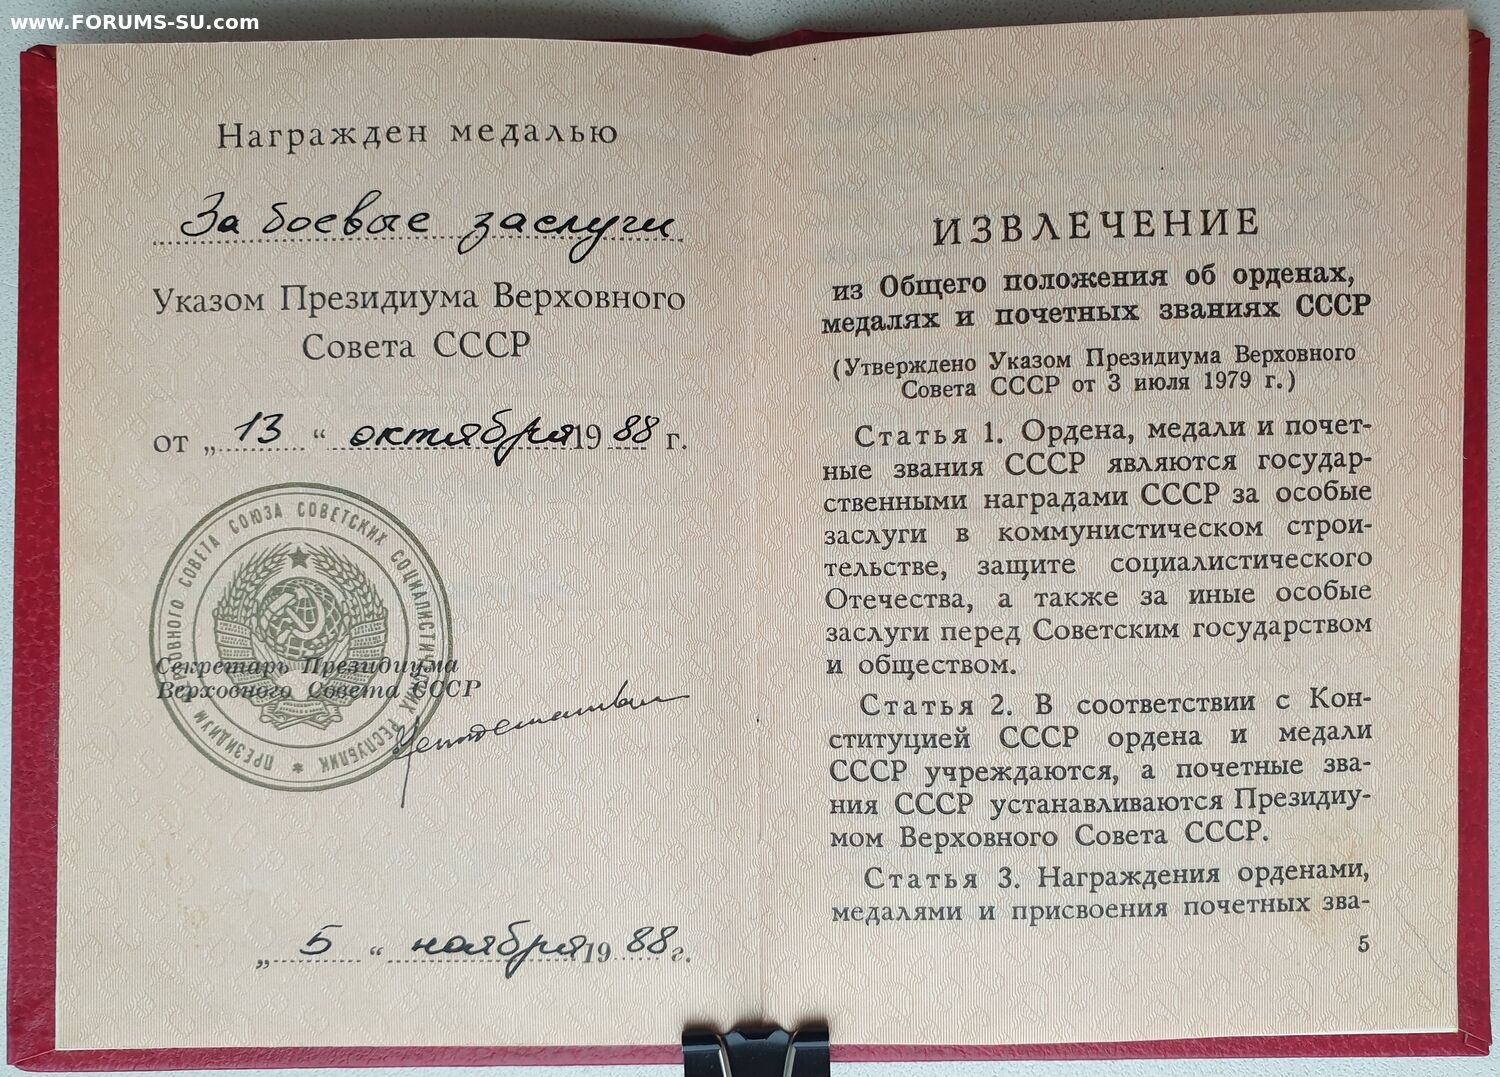 www.FORUMS-SU.com
Награжден медалью
За боевые заслуги
Указом Президиума Верховного
Совета СССР
от „ 13 “ октября 19 88 г.
ПРЕЗИДИУМ ВЕРХОВНОГО СОВЕТА СОЮЗА СОВЕТСКИХ СОЦИАЛИСТИЧЕСКИХ РЕСПУБЛИК
Секретарь Президиума
Верховного Совета СССР
„ 5 “ ноября 19 88 г.
ИЗВЛЕЧЕНИЕ
из Общего положения об орденах,
медалях и почетных званиях СССР
(Утверждено Указом Президиума Верховного
Совета СССР от 3 июля 1979 г.)
Статья 1. Ордена, медали и почет-
ные звания СССР являются государ-
ственными наградами СССР за особые
заслуги в коммунистическом строи-
тельстве, защите социалистического
Отечества, а также за иные особые
заслуги перед Советским государством
и обществом.
Статья 2. В соответствии с Кон-
ституцией СССР ордена и медали
СССР учреждаются, а почетные зва-
ния СССР устанавливаются Президиу-
мом Верховного Совета СССР.
Статья 3. Награждения орденами,
медалями и присвоения почетных зва-
5